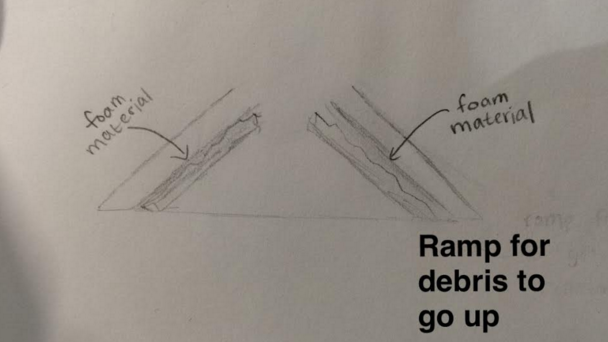 foam
material
foam
material
Ramp for
debris to
go up